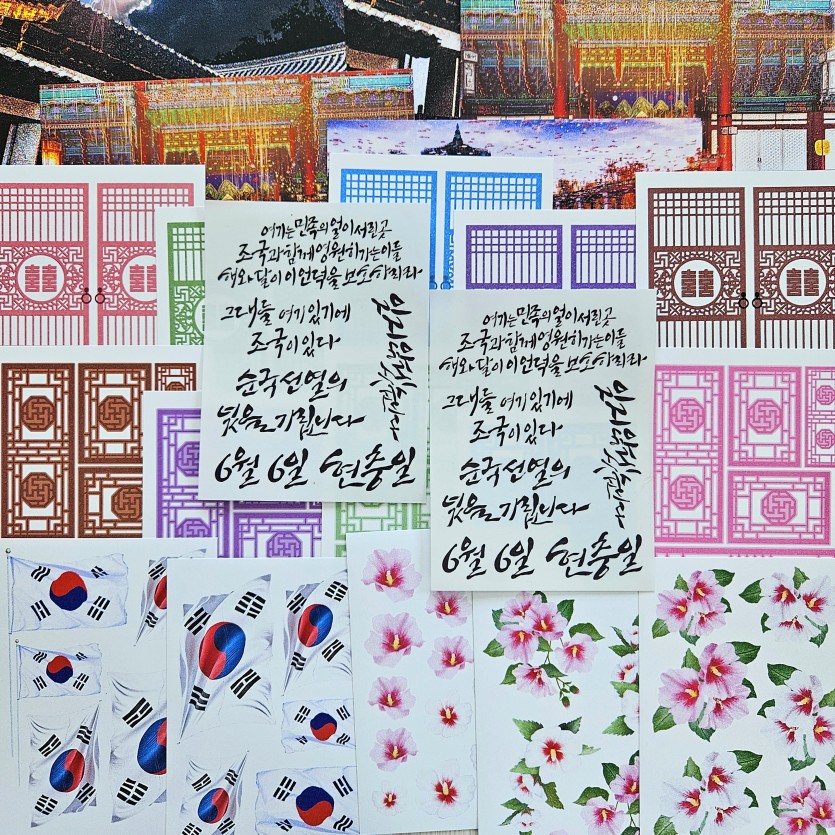 여기는 민족의 얼이 서린 곳
조국과 함께 영원히 가는 이들
해와 달이 이 언덕을 보호하리라
그대들 여기 있기에
조국이 있다
순국선열의
넋을 기립니다
잊지 않겠습니다
6월 6일 현충일
여기는 민족의 얼이 서린 곳
조국과 함께 영원히 가는 이들
해와 달이 이 언덕을 보호하리라
그대들 여기 있기에
조국이 있다
순국선열의
넋을 기립니다
잊지 않겠습니다
6월 6일 현충일